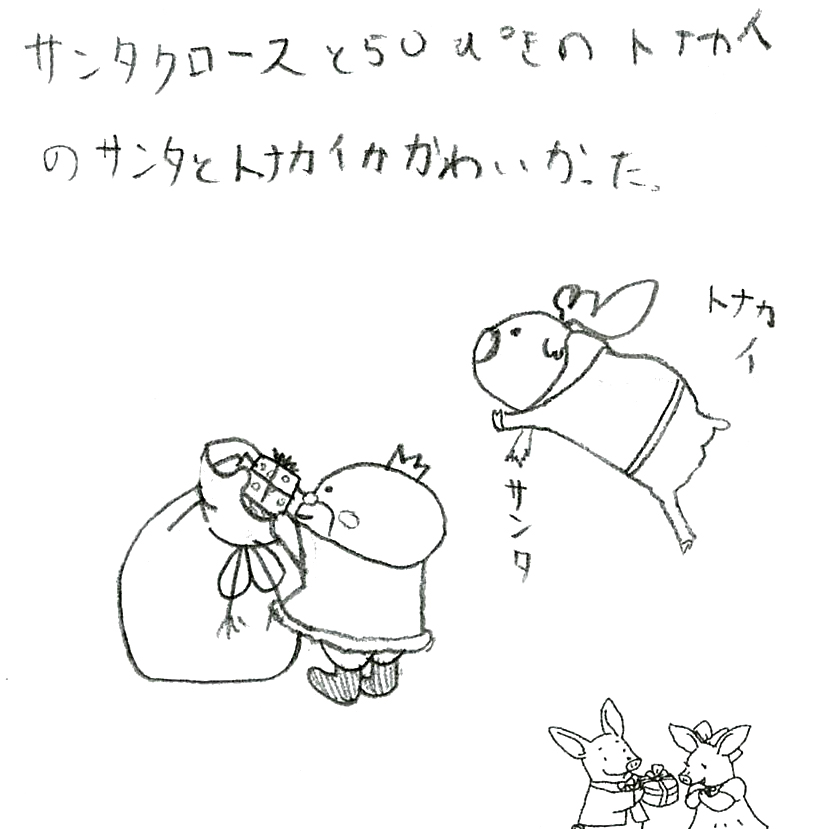 サンタクロースと50ぴきのトナカイ
のサンタとトナカイがかわいかった。
トナカ
イ
サンタ